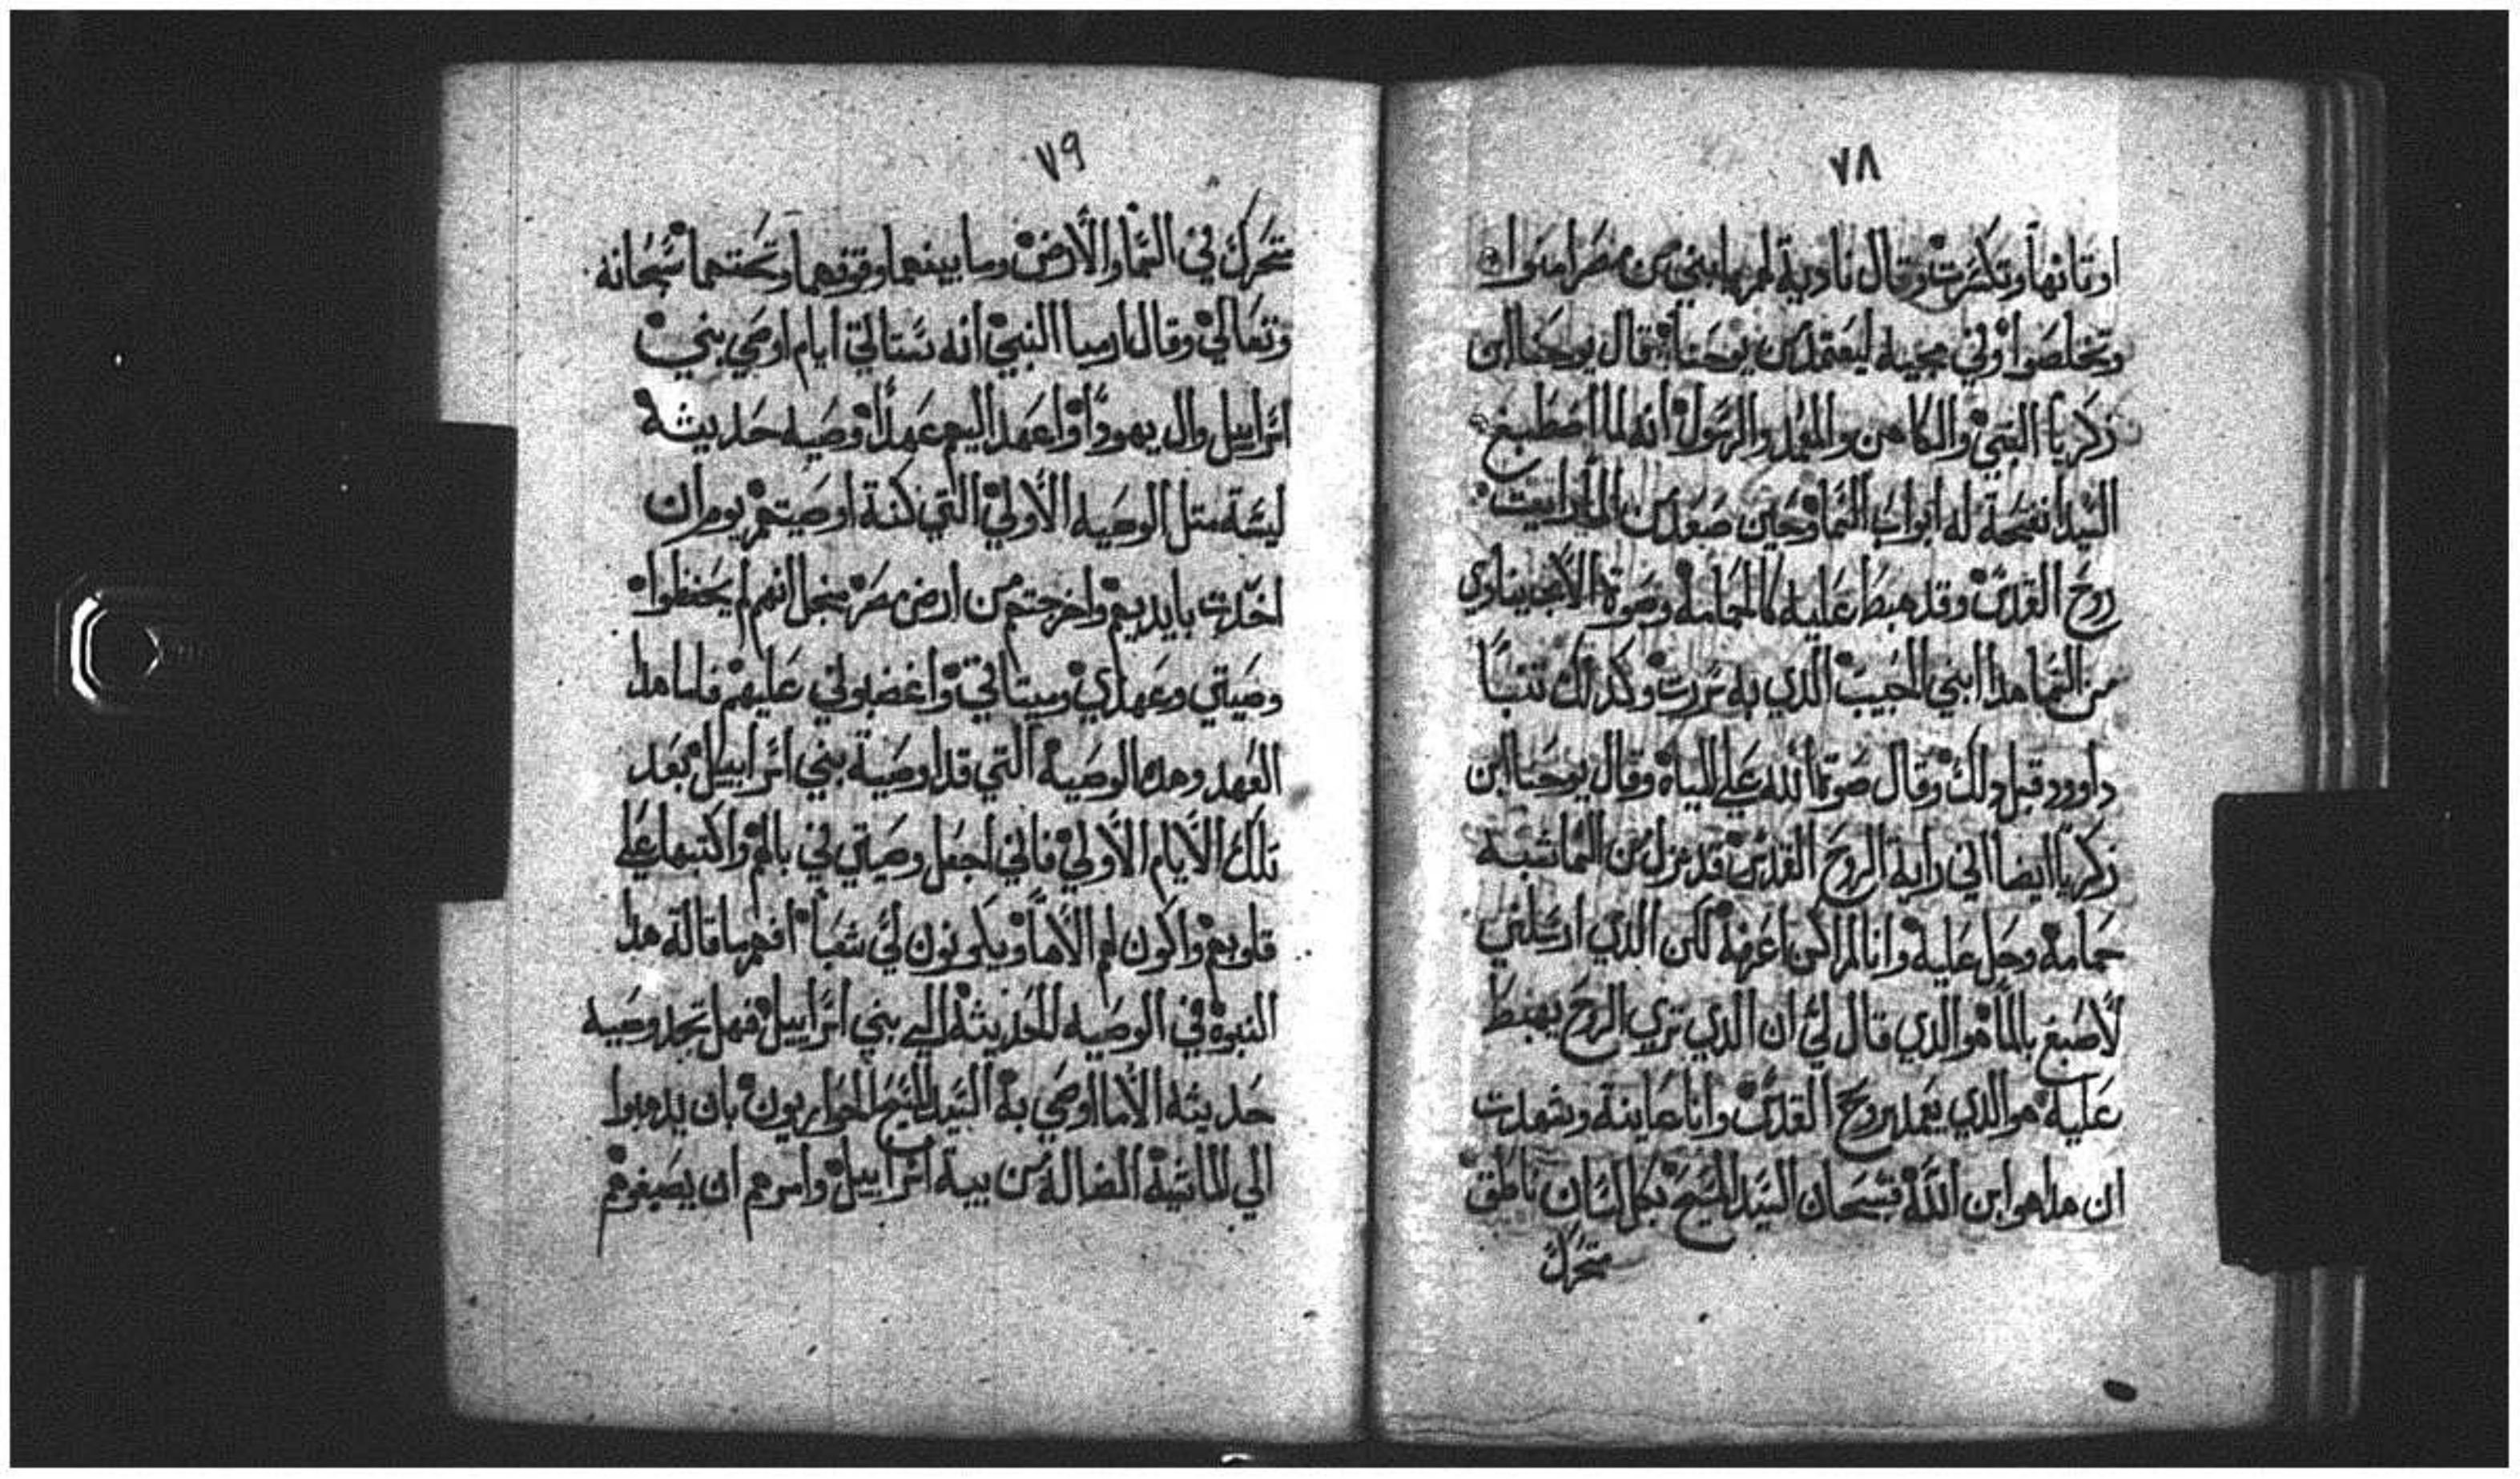 ٧٨
اوتانها وتكسرت وقال نادية لمرها ابني من مصر امنوا
وتخلصوا وفي مجيه ليعتمد من يوحنا قال يوحنا ابن
زكريا النبي والكاهن والمعمد والرسول انه لما اصطبغ
السيد انفتحة له ابواب السما وحين صعد من الما رايت
روح القدس وقد هبط عليه كالحمامة وصوة الاب ينادي
من السما هدا ابني الحبيب الدي به سررت وكدلك تنبا
داوود قبل دلك وقال صوة الله علي المياه وقال يوحنا ابن
زكريا ايضا اني راية الروح القدس قد نزل من السما شبه
حمامة وحل عليه وانا لم اكن اعرفه لكن الدي ارسلني
لأصبغ بالما هو الدي قال لي ان الدي تري الروح يهبط
عليه هو الدي يعمد بروح القدس وانا عاينة وشهدت
ان هدا هو ابن الله فسبحان السيد المسيح بكل لسان ناطق
متحرك
٧٩
متحرك في السما والأرض وما بينهما وفوقهما وتحتهما سبحانه
وتعالي وقال ارميا النبي انه ستاتي ايام اوصي بني
اسراييل وال يهودا واعهد اليهم عهداً وصيه حديثه
ليسة متل الوصيه الأولي التي كنة اوصيتهم يوم ان
اخدت بايديهم واخرجتهم من ارض مصر منجل انهم لم يحفظوا
وصيتي وعهدي وسيتاتي واغضبوني عليهم فاما هدا
العهد وهده الوصية التي قد اوصية بني اسراييل بعد
تلك الأيام الأولي فاني اجعل وصيتي في بالهم واكتبها علي
قلوبهم واكون لهم الاها ويكونون لي شعباً افهم ما قالة هدا
النبوة في الوصيه الحديثة الي بني اسراييل فهل تجد وصيه
حديثه الا ما اوصي به السيد المسيح الحواريون بان يدهبوا
الي الماشية الضالة من بية اسراييل وامرهم ان يصبغوهم